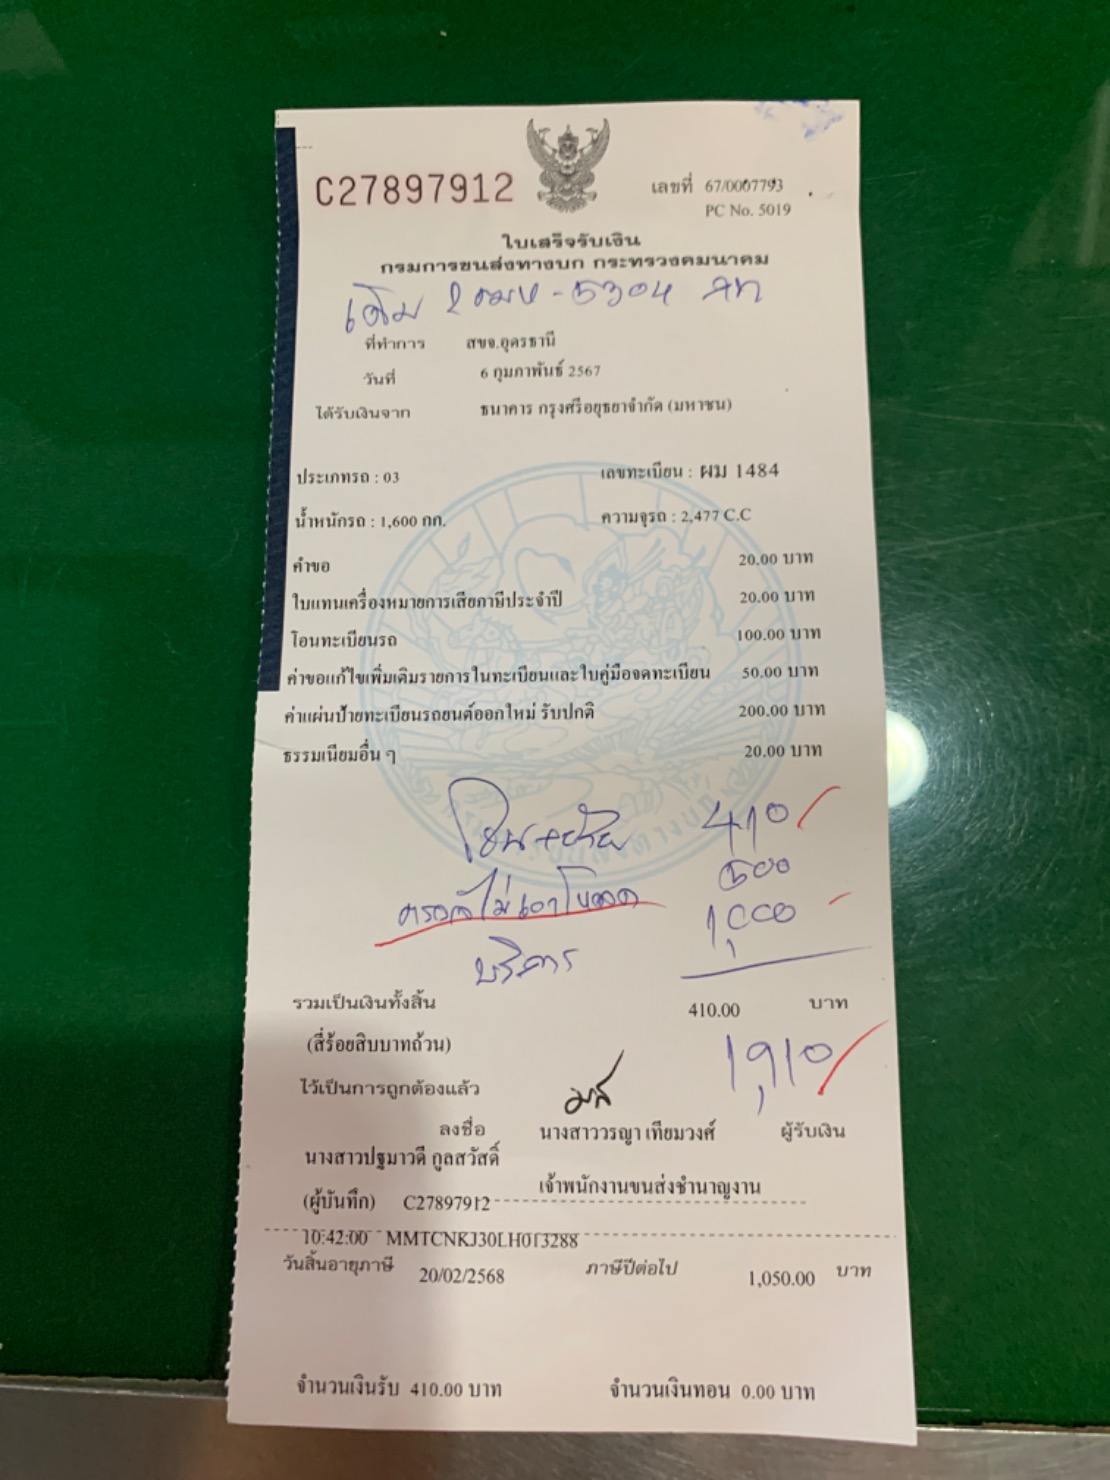 C27897912
เลขที่ 67/0007793
PC No. 5019
ใบเสร็จรับเงิน
กรมการขนส่งทางบก กระทรวงคมนาคม
เดิม 2ฒห-5304 กท
ที่ทำการ สขจ.อุดรธานี
วันที่ 6 กุมภาพันธ์ 2567
ได้รับเงินจาก ธนาคาร กรุงศรีอยุธยาจำกัด (มหาชน)
ประเภทรถ : 03 เลขทะเบียน : ผม 1484
น้ำหนักรถ : 1,600 กก. ความจุรถ : 2,477 C.C
คำขอ 20.00 บาท
ใบแทนเครื่องหมายการเสียภาษีประจำปี 20.00 บาท
โอนทะเบียนรถ 100.00 บาท
ค่าขอแก้ไขเพิ่มเติมรายการในทะเบียนและใบคู่มือจดทะเบียน 50.00 บาท
ค่าแผ่นป้ายทะเบียนรถยนต์ออกใหม่ รับปกติ 200.00 บาท
ธรรมเนียมอื่น ๆ 20.00 บาท
โอน+ย้าย 410
500
ตรอ ไม่เอาโหลด 1,000
บริการ
รวมเป็นเงินทั้งสิ้น 410.00 บาท
(สี่ร้อยสิบบาทถ้วน) 1,910
ไว้เป็นการถูกต้องแล้ว
ลงชื่อ นางสาววรญา เทียมวงศ์ ผู้รับเงิน
นางสาวปฐมาวดี กูลสวัสดิ์
เจ้าพนักงานขนส่งชำนาญงาน
(ผู้บันทึก) C27897912
10:42:00 MMTCNKJ30LH013288
วันสิ้นอายุภาษี 20/02/2568 ภาษีปีต่อไป 1,050.00 บาท
จำนวนเงินรับ 410.00 บาท จำนวนเงินทอน 0.00 บาท